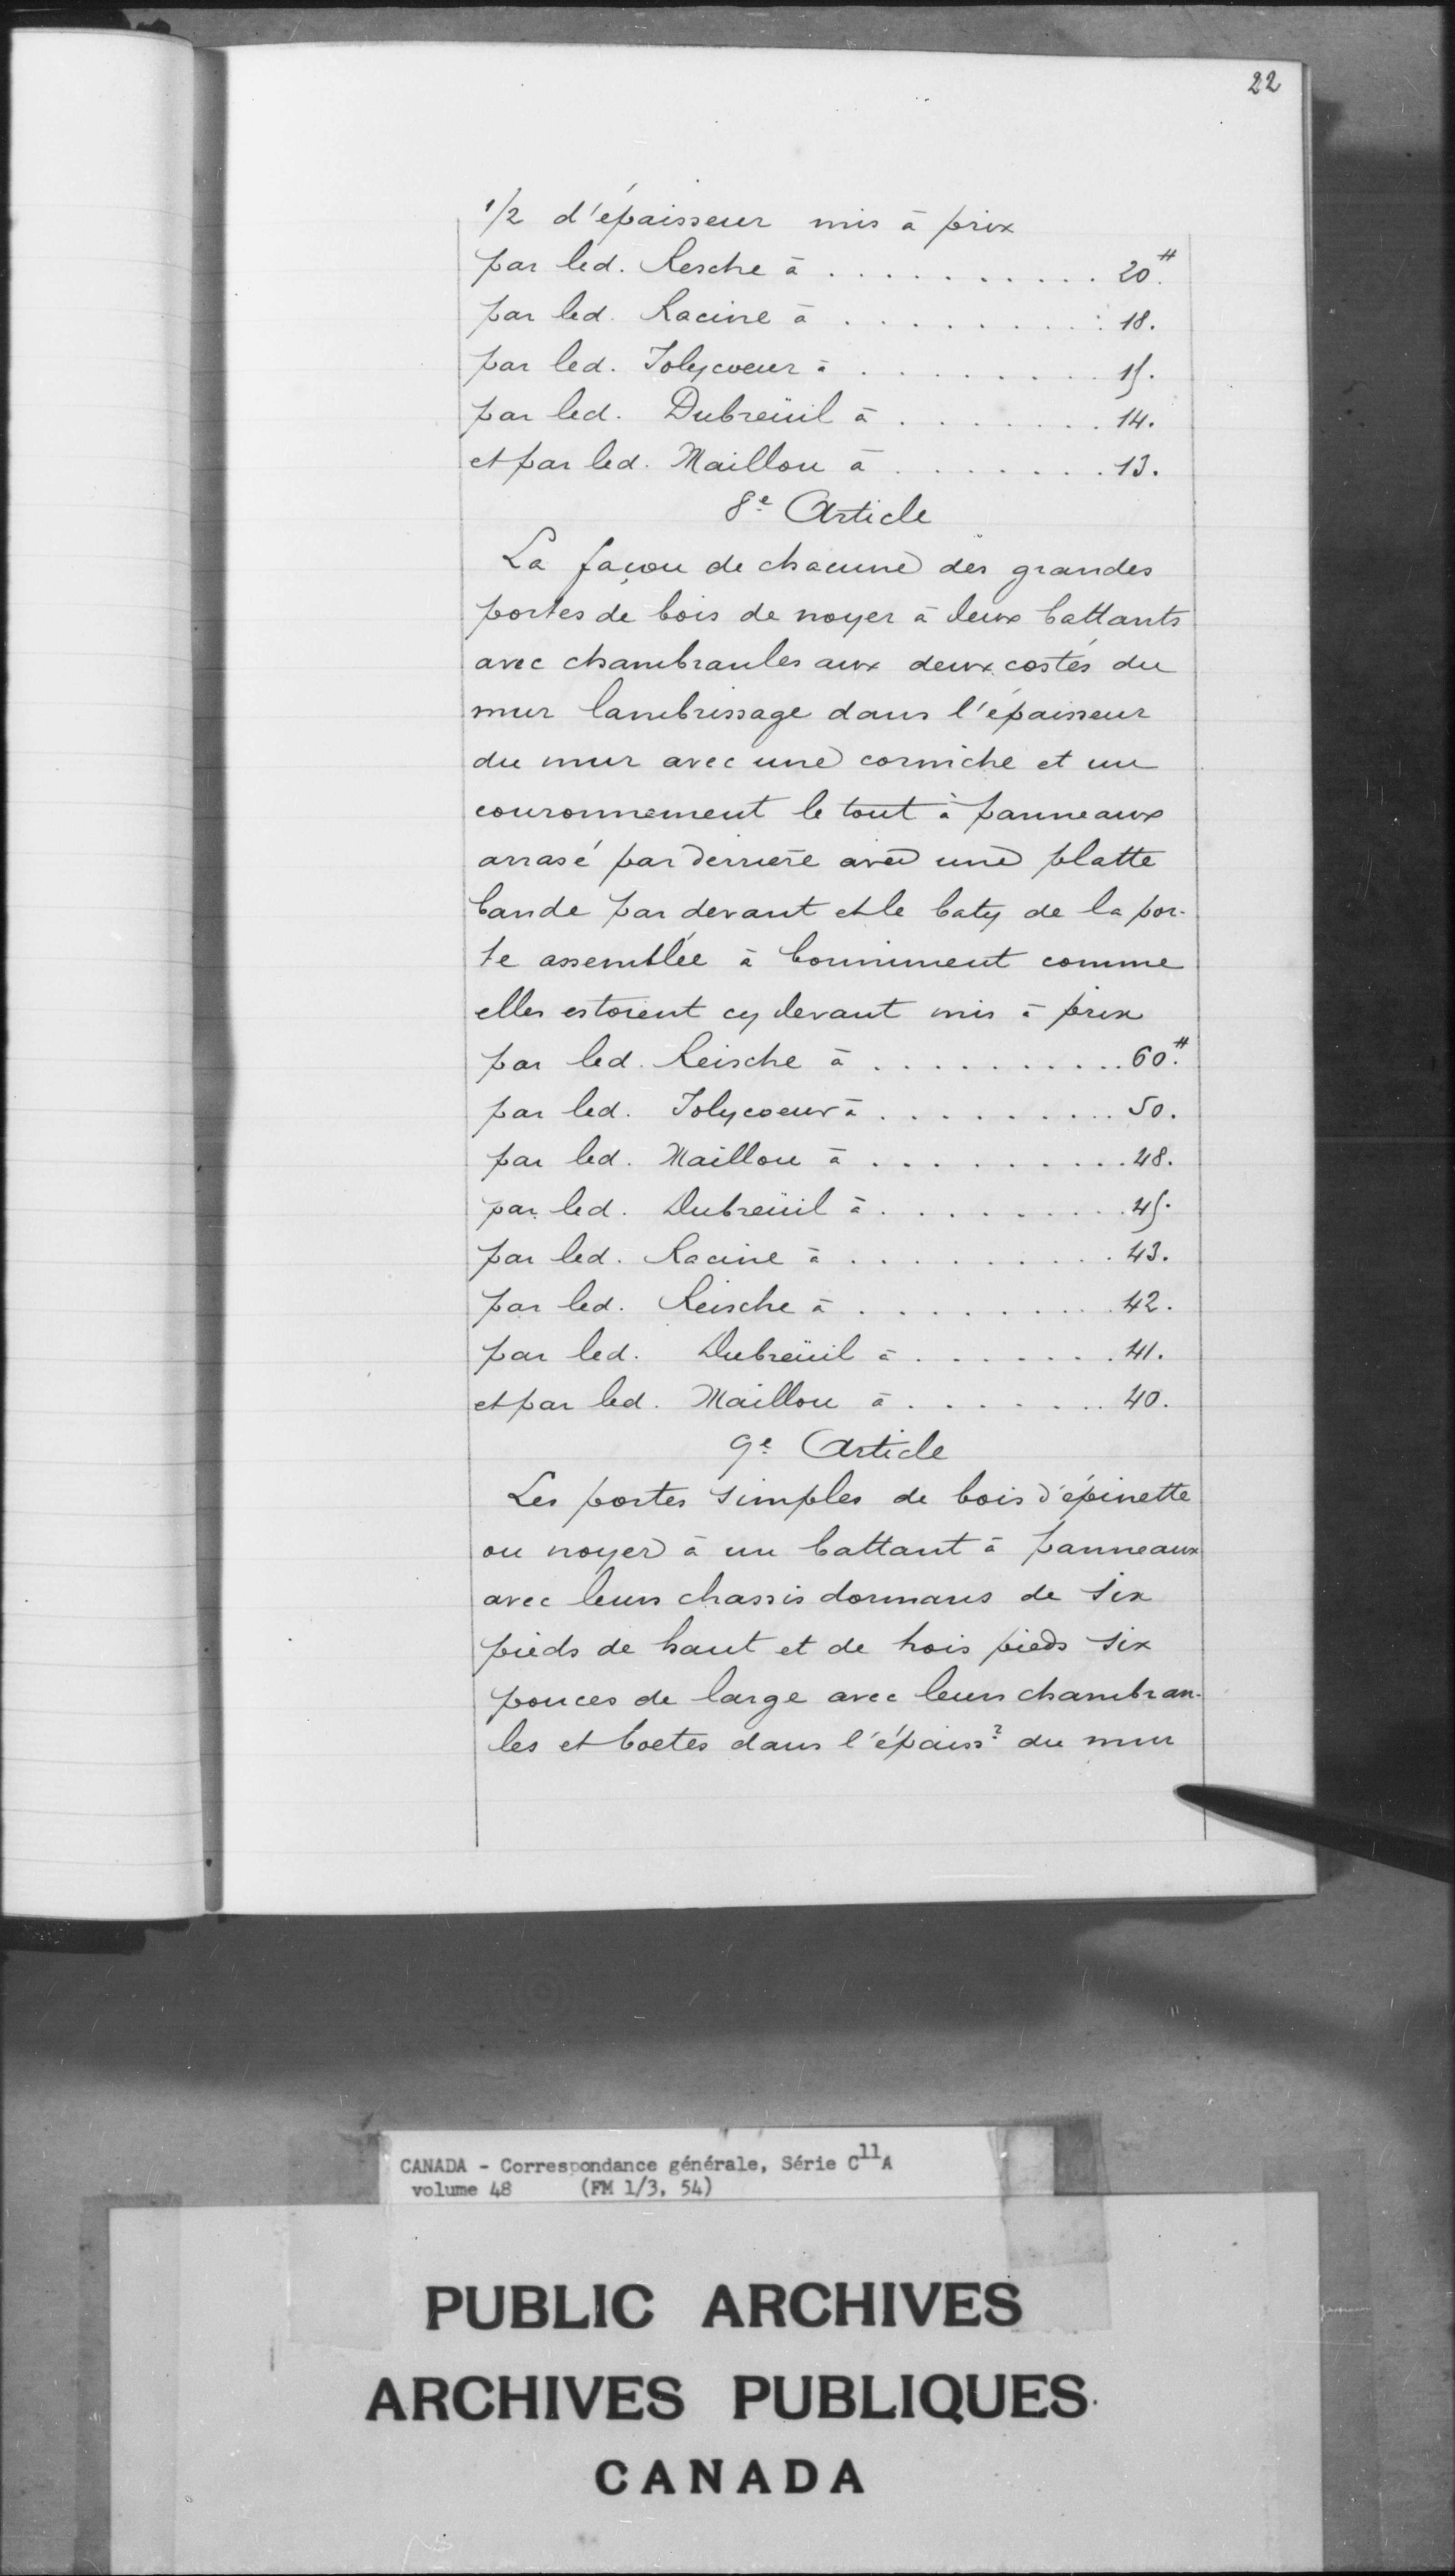 22
1/2 d'épaisseur mis à prix
par led. Resche à . . . . . . . . . . 20.#
par led. Racine à . . . . . . . . . . 18.
par led. Jolycoeur à . . . . . . . . . 15.
par led. Dubreüil à . . . . . . . . 14.
et par led. Maillou à . . . . . . . . 13.
8e Article
La façon de chacune des grandes
portes de bois de noyer à deux battants
avec chambranles aux deux costés du
mur lambrissage dans l'épaisseur
du mur avec une corniche et un
couronnement le tout à panneaux
arrasé par derriere avec une platte
bande par devant et le baty de la por-
te assemblée à bouniment comme
elles estoient cy devant mis à prix
par led. Reische à . . . . . . . . . . 60.#
par led. Jolycoeur à . . . . . . . . . 50.
par led. Maillou à . . . . . . . . . . 48.
par led. Dubreüil à . . . . . . . . . 45.
par led. Racine à . . . . . . . . . . 43.
par led. Reische à . . . . . . . . . . 42.
par led. Dubreüil à . . . . . . . . 41.
et par led. Maillou à . . . . . . . . 40.
9e Article
Les portes simples de bois d'épinette
ou noyer à un battant à panneaux
avec leurs chassis dormans de six
pieds de haut et de trois pieds six
pouces de large avec leurs chambran-
les et boetes dans l'épaissr du mur
CANADA - Correspondance générale, Série C11A
volume 48 (FM 1/3, 54)
PUBLIC ARCHIVES
ARCHIVES PUBLIQUES
CANADA